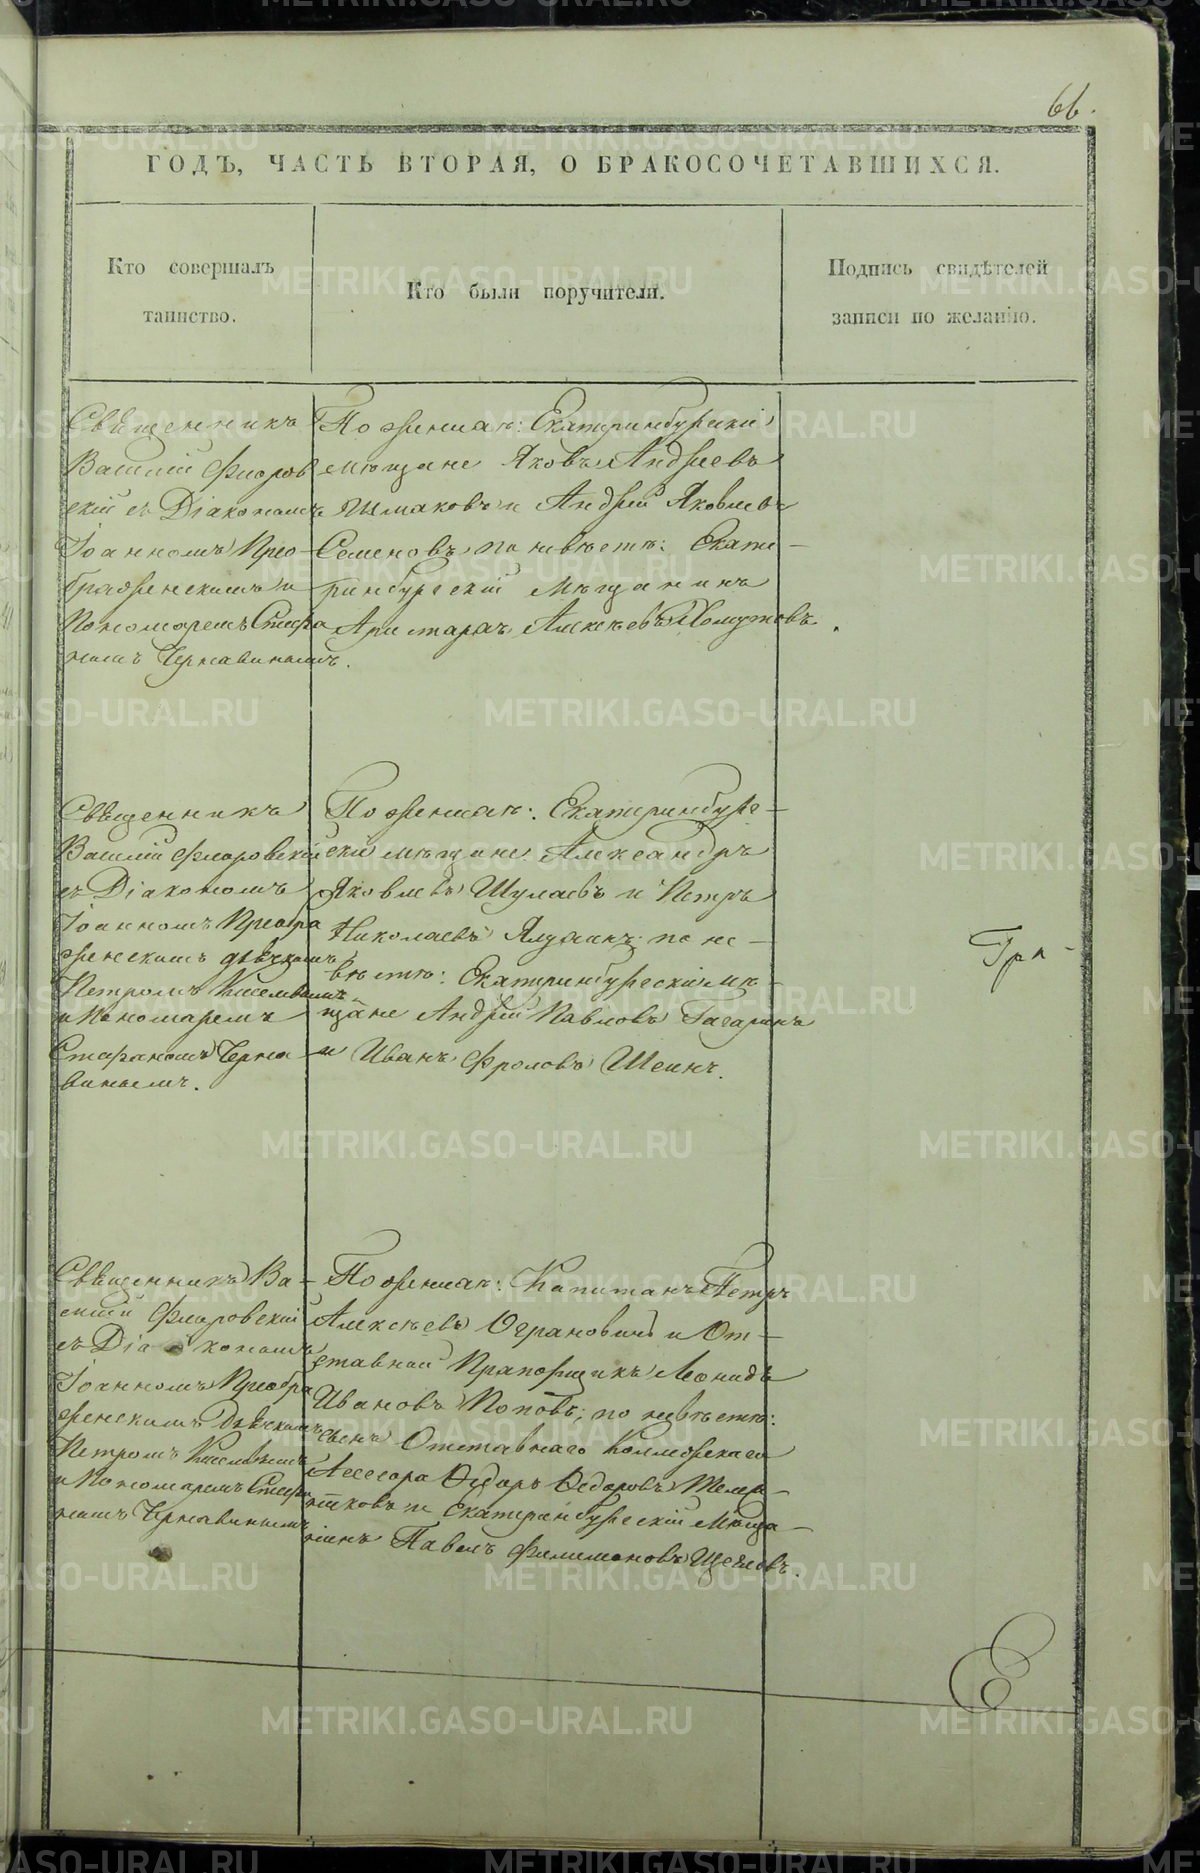 66.
ГОДЪ, ЧАСТЬ ВТОРАЯ, О БРАКОСОЧЕТАВШИХСЯ.
Кто совершалъ
таинство.
Кто были поручители.
Подпись свидѣтелей
записи по желанію.
Священникъ
Василій Флоров
скій съ Діакономъ
Іоанномъ Прео-
браженскимъ и
Пономаремъ Стефа
номъ Чернавинымъ.
По женихѣ: Екатеринбургскіе
мѣщане Яковъ Андреевъ
и Андрей Яковлевъ
Семеновъ, по невѣстѣ: Екате-
ринбургскій Мѣщанинъ
Аристархъ Алексѣевъ Хомутовъ.
Священникъ
Василій Флоровскій
съ Діакономъ
Іоанномъ Преобра
женскимъ дьячкомъ
Петромъ Киселевымъ
и Пономаремъ
Стефаномъ Черна
винымъ.
По женихѣ: Екатеринбург-
скіе мѣщане Александръ
Яковлевъ Шулаевъ и Петръ
Николаевъ по не-
вѣстѣ: Екатеринбургскіе мѣ-
щане Андрей Павловъ Гагаринъ
и Иванъ Фроловъ Шеинъ.
Гра-
Священникъ Ва-
силій Флоровскій
съ Діакономъ
Іоанномъ Преобра
женскимъ Дьячкомъ
Петромъ Киселевымъ
и Пономаремъ Стефа
номъ Чернавинымъ
По женихѣ: Капитанъ Петръ
Алексѣевъ Ограновичь и От-
ставной Прапорщикъ Леонидъ
Ивановъ Поповъ; по невѣстѣ:
сынъ Отставнаго Коллежскаго
Ассесора Ѳедоръ Ѳедоровъ
и Екатеринбургскій Мѣща-
нинъ Павелъ Филимоновъ Щегловъ.
METRIKI.GASO-URAL.RU